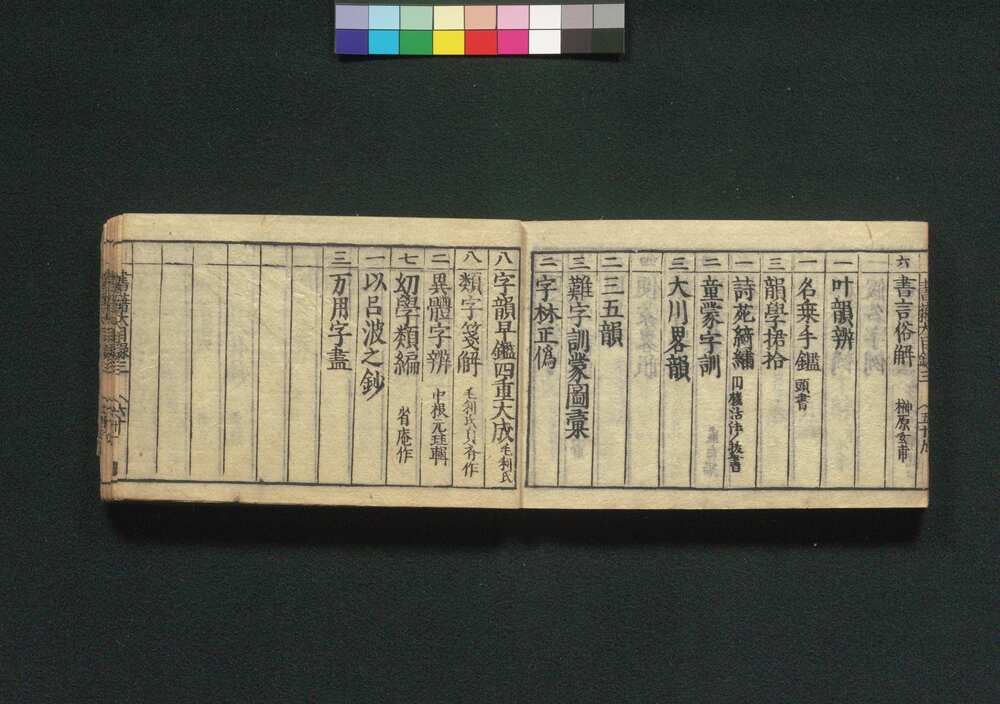 六 書言俗解 榊原玄甫
一 叶韻辨
一 名乗手鑑 頭書
三 韻學捃拾
一 詩苑綺繡
二 童蒙字訓
三 大川畧韻
二 三五韻
三 難字訓蒙圖彙
二 字林正僞
八 字韻早鑑四重大成 毛利氏
八 類字箋解 毛利氏貞斉作
二 異體字辨 中根元珪輯
七 幼學類編 省庵作
一 以呂波之鈔
三 万用字盡